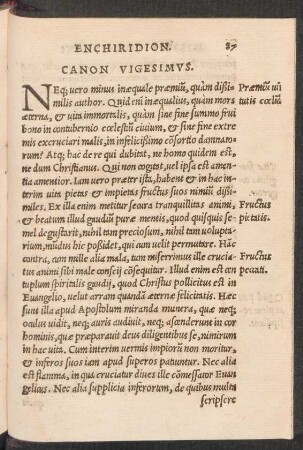 ENCHIRIDION. 87
CANON VIGESIMVS.
NEq; uero minus inæquale præmiũ, quàm dißi
milis author. Quid em̃ inæqualius, quàm mors
æterna, & uita immortalis, quàm sine fine summo frui
bono in contubernio cœlestiũ ciuium, & sine fine extre
mis excruciari malis, in infelicißimo cõsortio damnato
rum? Atq; hac de re qui dubitat, ne homo quidem est,
ne dum Christianus. Qui non cogitat, uel ipsa est amen
tia amentior. Iam uero præter ista, habent & in hac in
terim uita pietas & impietas fructus suos nimiũ dißi
miles. Ex illa enim metitur secura tranquillitas animi,
& beatum illud gaudiũ puræ mentis, quod quisquis se
mel degustarit, nihil tam preciosum, nihil tam volupta
rium, mũdus hic poßidet, qui cum uelit permutare. Hãc
contra, can mille alia mala, tum miserrimus ille crucia
tus animi sibi male conscij cõsequitur. Illud enim est cen
tuplum spiritalis gaudij, quod Christus pollicitus est in
Euangelio, uelut arram quandã æternæ felicitatis. Hæc
sunt illa apud Apostolum miranda munera, quæ neq;
oculus uidit, neq; auris audiuit, neq; ascenderunt in cor
hominis, quæ præparauit deus diligentibus se, nimirum
in hac uita. Cum interim uermis impiorũ non moritur,
& inferos suos iam apud superos patiuntur. Nec alia
est flamma, in qua cruciatur diues ille cõmessator Euan
gelicus. Nec alia supplicia inferorum, de quibus multa
scripsere
Præmiũ uir
tutis cœlũ
Fructus
pietatis.
Fructus
peccati.